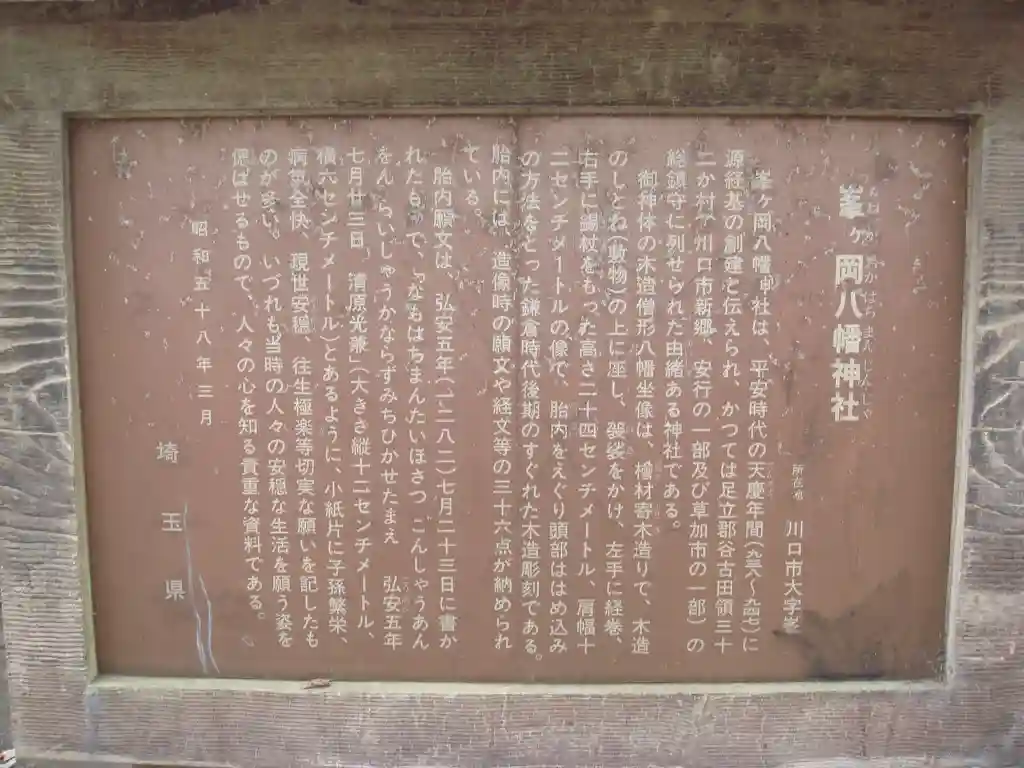 峯ヶ岡八幡神社
所在地 川口市大字峯
峯ヶ岡八幡神社は、平安時代の天慶年間(九三八〜九四七)に
源経基の創建と伝えられ、かつては足立郡谷古田領三十
二か村(川口市新郷、安行の一部及び草加市の一部)の
総鎮守に列せられた由緒ある神社である。
御神体の木造僧形八幡坐像は、檜材寄木造りで、木造
のしとね(敷物)の上に座し、袈裟をかけ、左手に経巻、
右手に錫杖をもった高さ二十四センチメートル、肩幅十
二センチメートルの像で、胎内をえぐり頭部ははめ込み
の方法をとった鎌倉時代後期のすぐれた木造彫刻である。
胎内には、造像時の願文や経文等の三十六点が納められ
ている。
胎内願文は、弘安五年(一二八二)七月二十三日に書か
れたもので、「なもはちまんたいほさつ こんしゃうあん
をん、らいしゃうかならずみちひかせたまえ 弘安五年
七月廿三日、清原光兼」(大きさ縦十二センチメートル、
横六センチメートル)とあるように、小紙片に子孫繁栄、
病気全快、現世安穏、往生極楽等切実な願いを記したも
のが多い。いづれも当時の人々の安穏な生活を願う姿を
偲ばせるもので、人々の心を知る貴重な資料である。
昭和五十八年三月
埼玉県